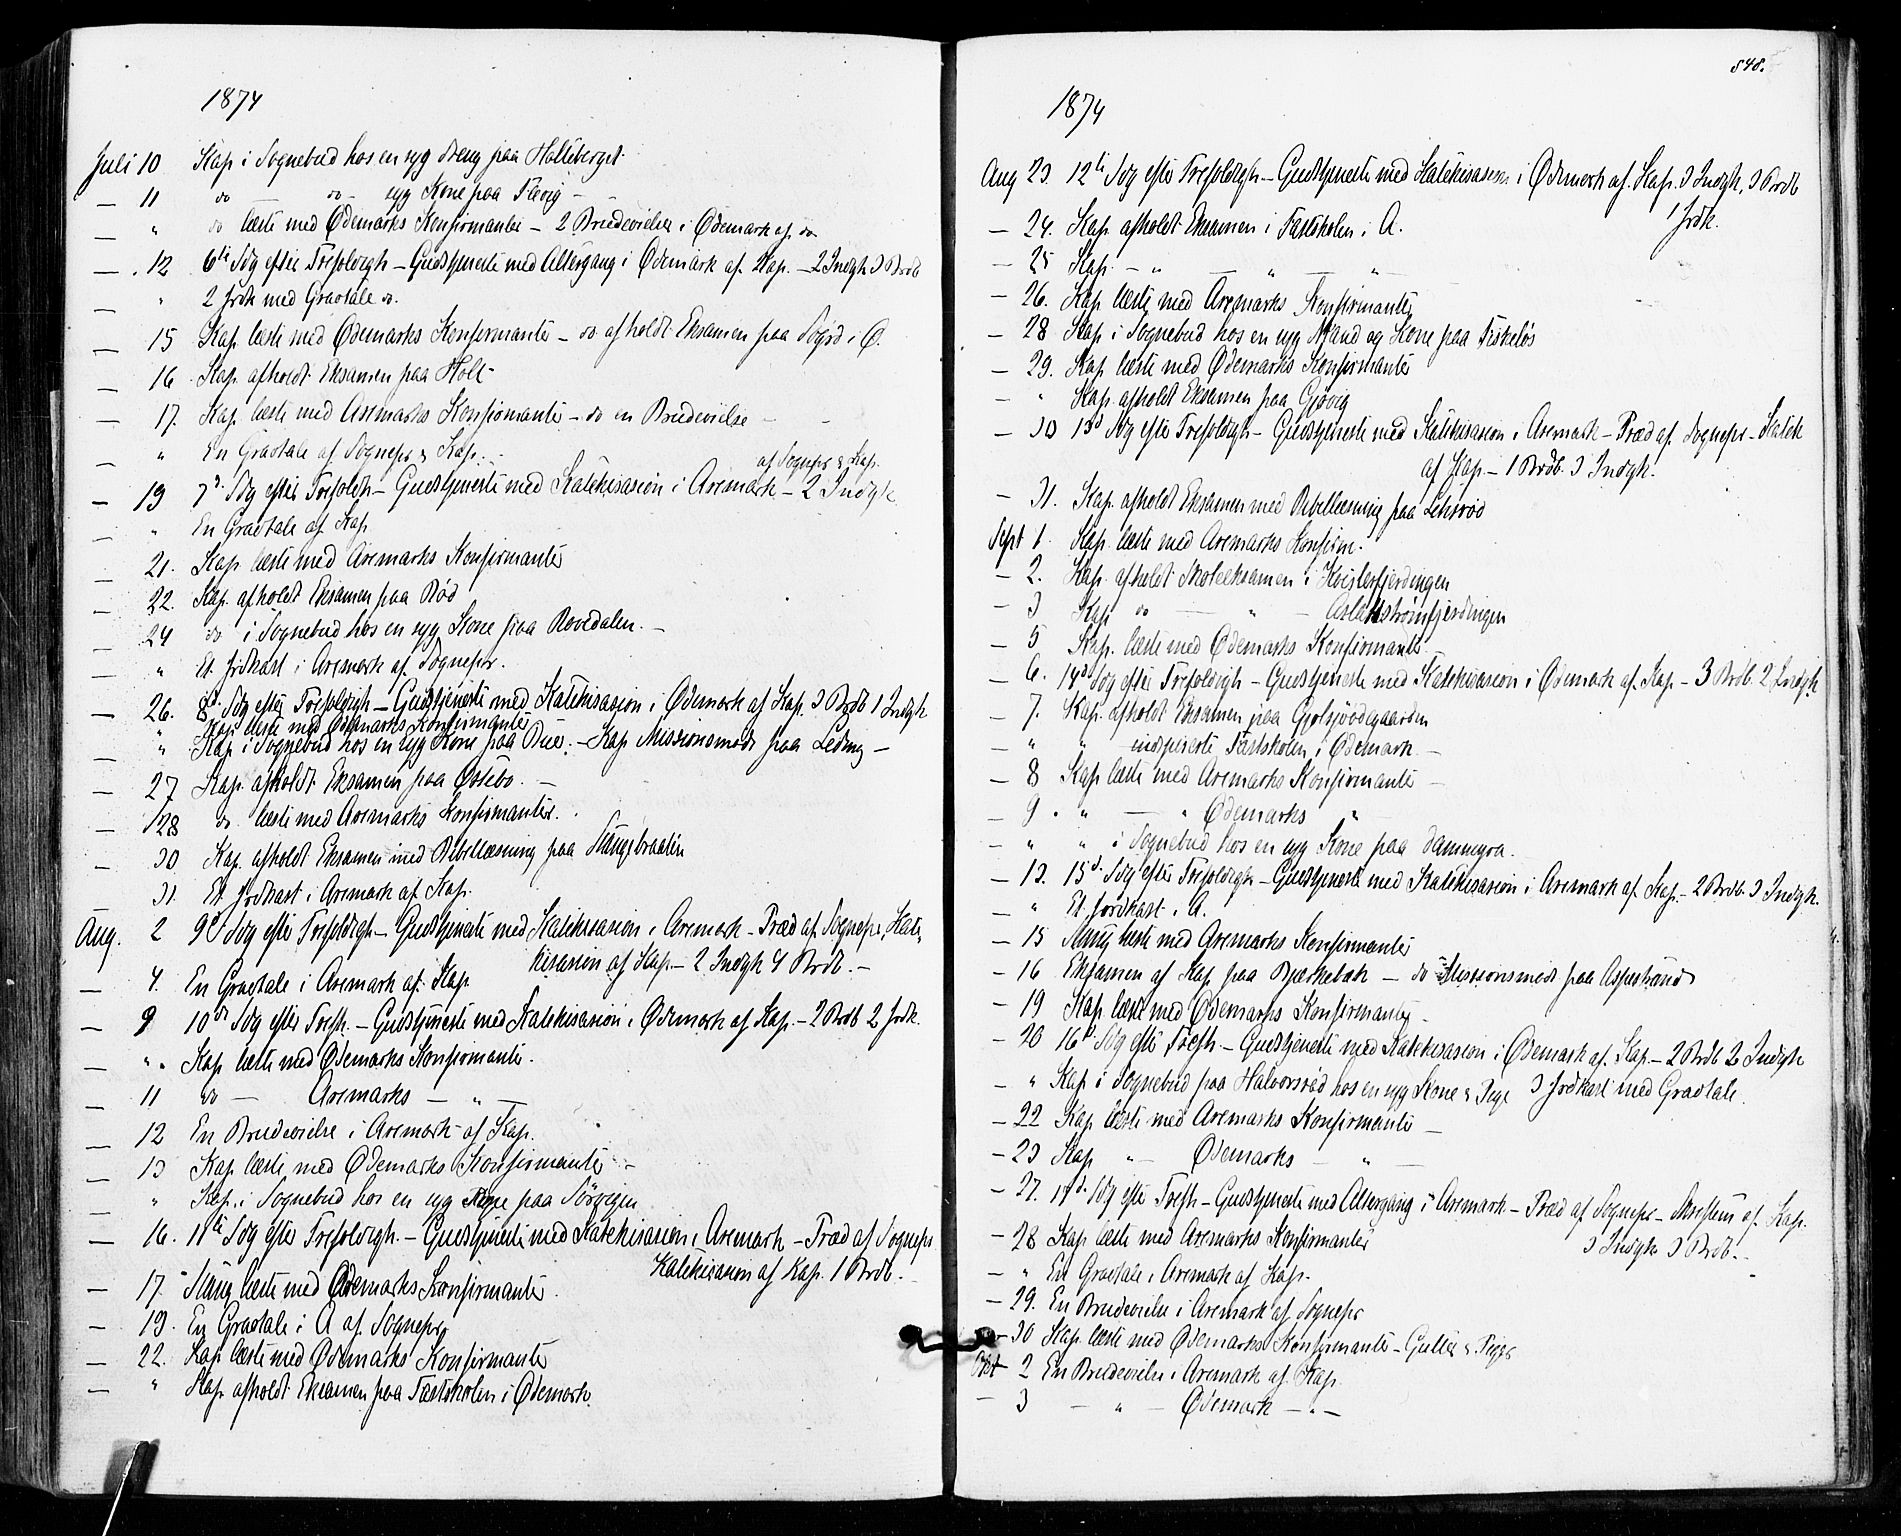 1874
Juli 10 Kap. i Sognebud hos en syg Dreng paa Halleberget
— 11 do — do — syg Kone paa Tievig —
— " do læste med Ødemarks Konfirmanter — 2 Brudevielser i Ødemark af do
— 12 6te Sdg efter Trefoldigh — Gudstjeneste med Altergang i Ødemark af Kap. — 2 Indgk 3 Brdb
— " 2 Jrdk med Gravtale do.
— 15 Kap. læste med Ødemarks Konfirmanter — do afholdt Eksamen paa i Ø.
— 16 Kap. afholdt Eksamen paa Holt —
— 17. Kap. læste med Aremarks Konfirmanter — do en Brudevielse —
— " En Gravtale af Sognepr & Kap. —
af Sognepr & Kap.
— 19 7d. Sdg efter Trefoldh — Gudstjeneste med Katekisasion i Aremark — 2 Indgk
— " En Gravtale af Kap.
— 21. Kap. læste med Aremarks Konfirmanter
— 22. Kap. afholdt Eksamen paa Rød
— 24 do i Sognebud hos en syg Kone paa Bovedalen. —
— " Et Jrdkast i Aremark af Sognepr.
— 26. 8d. Sdg efter Trefoldigh — Gudstjeneste med Katekisasion i Ødemark af Kap. 3 Brdb 1 Indgk
Kap. læste med Ødemarks Konfirmanter
— " Kap. i Sognebud hos en syg Kone paa Bue. — Kap Missionsmøde paa Leding —
— 27 Kap. afholdt Eksamen paa Østebø. —
— 28 do. læste med Aremarks Konfirmanter.
— 30 Kap. afholdt Eksamen med Bibellæsning paa Stangebraaten
— 31. Et Jordkast i Aremark af Kap.
Aug. 2 9d Sdg efter Trefoldigh — Gudstjeneste med Katekisasion i Aremark — Præd af Sognepr, Kate-
kisasion af Kap. — 2 Indgk 4 Brdb. —
— 4. En Gravtale i Aremark af Kap
— 9 10de Sdg efter Trefh. — Gudstjeneste med Katekisasion i Ødemark af Kap. — 2 Brdb 2 Jrdk.
— " Kap læste med Ødemarks Konfirmanter.
— 11 do — Aremarks — " —
— 12 En Brudevielse i Aremark af Kap.
— 13 Kap læste med Ødemarks Konfirmanter —
— " Kap. i Sognebud hos en syg Kone paa Sörvigen
— 16. 11te Sdg efter Trefoldigh. — Gudstjeneste med Katekisasion i Aremark — Præd af Sognepr
Katekisasion af Kap. 1 Brdb. —
— 17. læste med Ødemarks Konfirmanter.
— 19. En Gravtale i A af Sognepr
— 22. Kap læste med Ødemarks Konfirmanter
— " Kap afholdt Eksamen paa Fastskolen i Ødemark.
548.
1874
Aug 23. 12te Sdg efter Trefoldigh — Gudstjeneste med Katekisasion i Ødemark af Kap. 3 Indgk, 3 Brdb
1 Jrdk.
— 24. Kap. afholdt Eksamen i Fastskolen i A.
— 25 Kap. — " — " — "
— 26. Kap læste med Aremarks Konfirmanter
— 28 Kap i Sognebud hos en syg Mand og Kone paa Fiskeløs
— 29. Kap læste med Ødemarks Konfirmanter
— " Kap. afholdt Eksamen paa Gjøvig
— 30 13d Sdg efter Trefoldigh — Gudstjeneste med Katekisasion i Aremark — Præd af Sognepr — Katek
af Kap — 1 Brdb. 3 Indgk.
— 31. Kap. afholdt Eksamen med Bibellæsning paa
Sept 1. Kap. læste med Aremarks Konfirm.
— 2. Kap. afholdt Skoleeksamen i Kvislerfjerdingen
— 3 Kap do — " — Aslakstrømfjerdingen
— 5 Kap. læste med Ødemarks Konfirmanter
— 6. 14de Sdg efter Trefoldigh — Gudstjeneste med Katekisasion i Ødemark af Kap — 3 Brdb. 2 Indgk
— 7. Kap. afholdt Eksamen paa Gjølsjøødegaarden
— " " inspiserte Fastskolen i Ødemark —
— 8 Kap læste med Aremarks Konfirmanter —
— 9 " — " Ødemarks "
— " " i Sognebud hos en syg Kone paa Dammyra.
— 13. 15d. Sdg efter Trefoldigh — Gudstjeneste med Katekisasion i Aremark af Kap. — 2 Brdb. 3 Indgk.
— " Et Jordkast i A.
— 15 læste med Aremarks Konfirmanter
— 16 Eksamen af Kap paa Bjærkebæk — do Missionsmøde paa Aspestrand
— 19 Kap læste med Ødemarks Konfirmanter —
— 20 16d Sdg efter Trefh. — Gudstjeneste med Katekisasion i Ødemark af Kap — 2 Brdb 2 Indgk
— " Kap i Sognebud paa Halvorsrød hos en syg Kone & Pige 3 Jrdkast med Gravtale.
— 22 Kap læste med Aremarks Konfirmanter —
— 23 Kap " — Ødemarks — " —
— 27. 17d. Sdg efter Trefh — Gudstjeneste med Altergang i Aremark — Præd af Sognepr — Skriftem af Kap.
3 Indgk 3 Brdb. —
— 28 Kap læste med Aremarks Konfirmanter
— " En Gravtale i Aremark af Kap.
— 29. En Brudevielse i Aremark af Sognepr
— 30 Kap. læste med Ødemarks Konfirmanter — Gutter & Piger
Okt 2 En Brudevielse i Aremark af Kap.
— 3 — " — Ødemark — " —